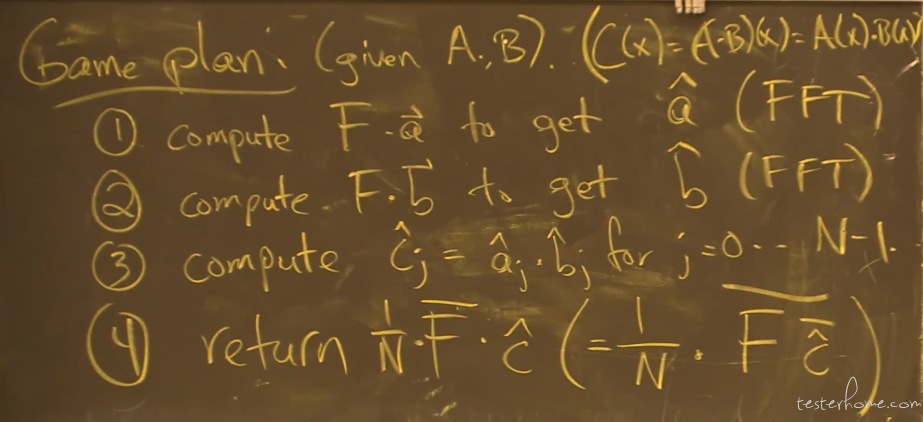 Game plan: (given A, B). (C(x) = (A·B)(x) = A(x)·B(x)
① compute F·a⃗ to get â (FFT)
② compute F·b⃗ to get b̂ (FFT)
③ compute ĉⱼ = âⱼ·b̂ⱼ for j=0 ... N-1.
④ return 1/N · F̅ · ĉ (= 1/N · \overline{F \overline{ĉ}})
testerhome.com